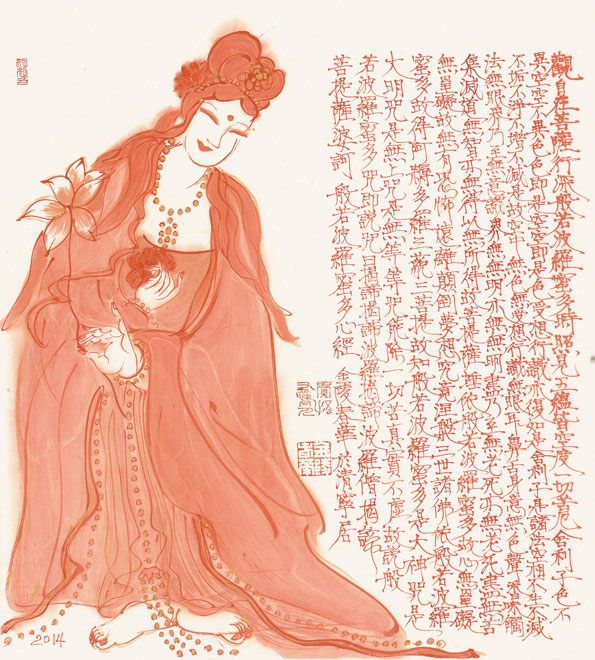 觀自在菩薩行深般若波羅蜜多時照見五蘊皆空度一切苦厄舍利子色不
異空空不異色色即是空空即是色受想行識亦復如是舍利子是諸法空相不生不滅
不垢不淨不增不減是故空中無色無受想行識無眼耳鼻舌身意無色聲香味觸
法無眼界乃至無意識界無無明亦無無明盡乃至無老死亦無老死盡無苦
集滅道無智亦無得以無所得故菩提薩埵依般若波羅蜜多故心無罣礙
無罣礙故無有恐怖遠離顛倒夢想究竟涅槃三世諸佛依般若波羅
蜜多故得阿耨多羅三藐三菩提故知般若波羅蜜多是大神咒是
大明咒是無上咒是無等等咒能除一切苦真實不虛故說般
若波羅蜜多咒即說咒曰揭諦揭諦波羅揭諦波羅僧揭諦
菩提薩婆訶 般若波羅蜜多心經 金陵 華 於清寧居
2014